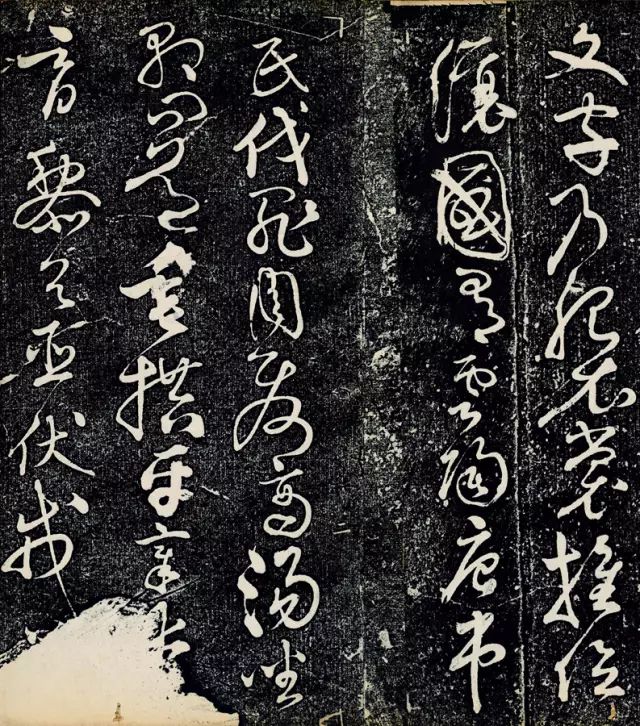 文字乃服衣裳推位
讓國有虞陶唐弔
民伐罪周發商湯坐
朝問道垂拱平章愛
育黎首臣伏戎